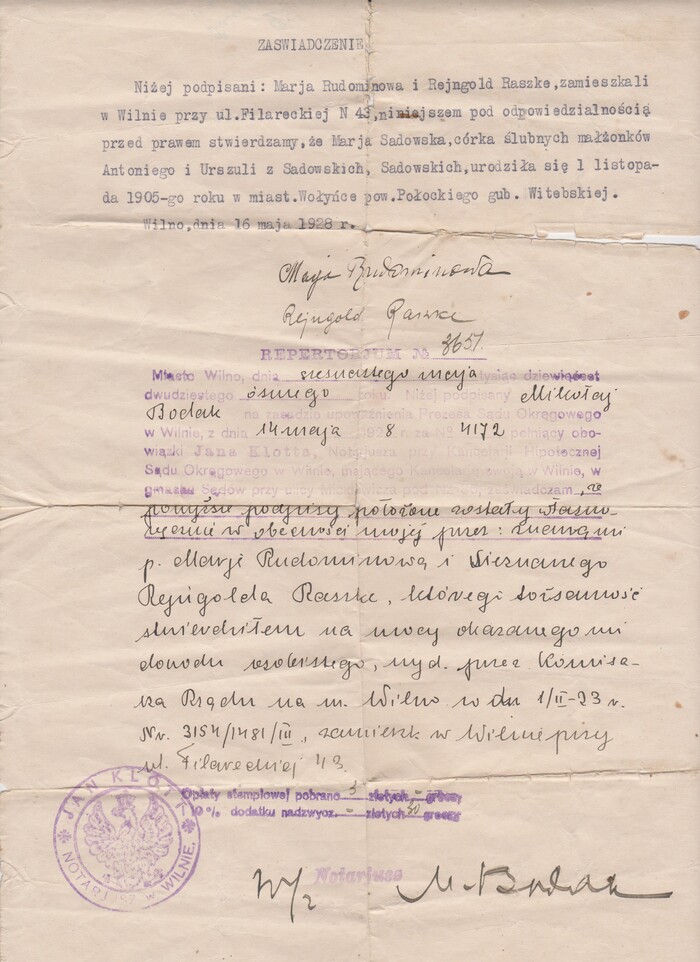 ZASWIADCZENIE
Niżej podpisani: Marja Rudominowa i Rejngold Raszke, zamieszkali
w Wilnie przy ul.Filareckiej N 43, niniejszem pod odpowiedzialnością
przed prawem stwierdzamy, że Marja Sadowska, córka ślubnych małżonków
Antoniego i Urszuli z Sadowskich, Sadowskich, urodziła się 1 listopa-
da 1905-go roku w miast.Wołyńce pow.Połockiego gub. Witebskiej.
Wilno, dnia 16 maja 1928 r.
Marja Rudominowa
Rejngold Raszke
REPERTORJUM № 3651.
Miasto Wilno, dnia szesnastego maja tysiąc dziewięćset
dwudziestego ósmego roku. Niżej podpisany Mikołaj
Bodak na zasadzie upoważnienia Prezesa Sądu Okręgowego
w Wilnie, z dnia 14 maja 1928 r. za № 4172 pełniący obo-
wiązki Jana Klotta, Notarjusza przy Kancelarji Hipotecznej
Sądu Okręgowego w Wilnie, mającego Kancelarję swoją w Wilnie, w
gmachu Sądów przy ulicy zaświadczam, że
powyższe podpisy położone zostały własno-
ręcznie w obecności mojej przez: znaną mi
p. Marję Rudominową i nieznanego
Rejngolda Raszke, którego tożsamość
stwierdziłem na mocy okazanego mi
dowodu osobistego, wyd. przez Komisa-
rza Rządu na m. Wilno w dn 1/II-23 r.
Nr. 3154/1481/III, zamieszk w Wilnie przy
ul. Filareckiej 43.
Opłaty stemplowej pobrano 3 złotych - groszy
10% dodatku nadzwycz. - złotych 30 groszy
JAN KLOTT
NOTARJUSZ w WILNIE.
Notarjusz
W/z M. Bodak